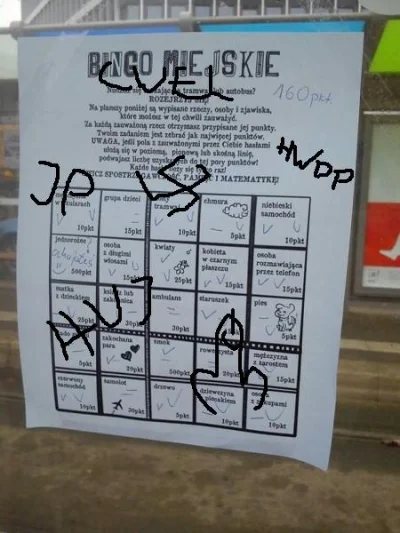 BINGO MIEJSKIE
CWEL
Nudzisz się czekając na tramwaj lub autobus?
460pkt.
ROZEJRZYJ SIĘ!
Na planszy poniżej są wypisane rzeczy, osoby i zjawiska,
które możesz w tej chwili zauważyć.
Za każdą zauważoną rzecz otrzymasz przypisane jej punkty.
Twoim zadaniem jest zebrać jak najwięcej punktów.
UWAGA, jeśli pola z zauważonymi przez Ciebie hasłami
ułożą się w poziomą, pionową lub skośną linię,
podwajasz liczbę
do tej pory punktów!
HWDP
raz!
PAMIĘĆ I MATEMATYKĘ!
JP
10pkt
grupa dzieci
15pkt
tramwaj
10pkt
chmura
5pkt
niebieski
samochód
10pkt
jednorożec
500pkt
osoba
z długimi
włosami
15pkt
kwiaty
25pkt
kobieta
w czarnym
płaszczu
15pkt
osoba
rozmawiająca
przez telefon
15pkt
matka
z dzieckiem
25pkt
ksiądz lub
zakonnica
30pkt
ambulans
30pkt
staruszek
pies
5pkt
HUJ
5pkt
zakochana
para
20pkt
smok
500pkt
rowerzysta
20pkt
mężczyzna
z zarostem
15pkt
czerwony
samochód
10pkt
samolot
30pkt
drzewo
5pkt
dziewczyna
z plecakiem
10pkt
osoba
z zakupami
10pkt